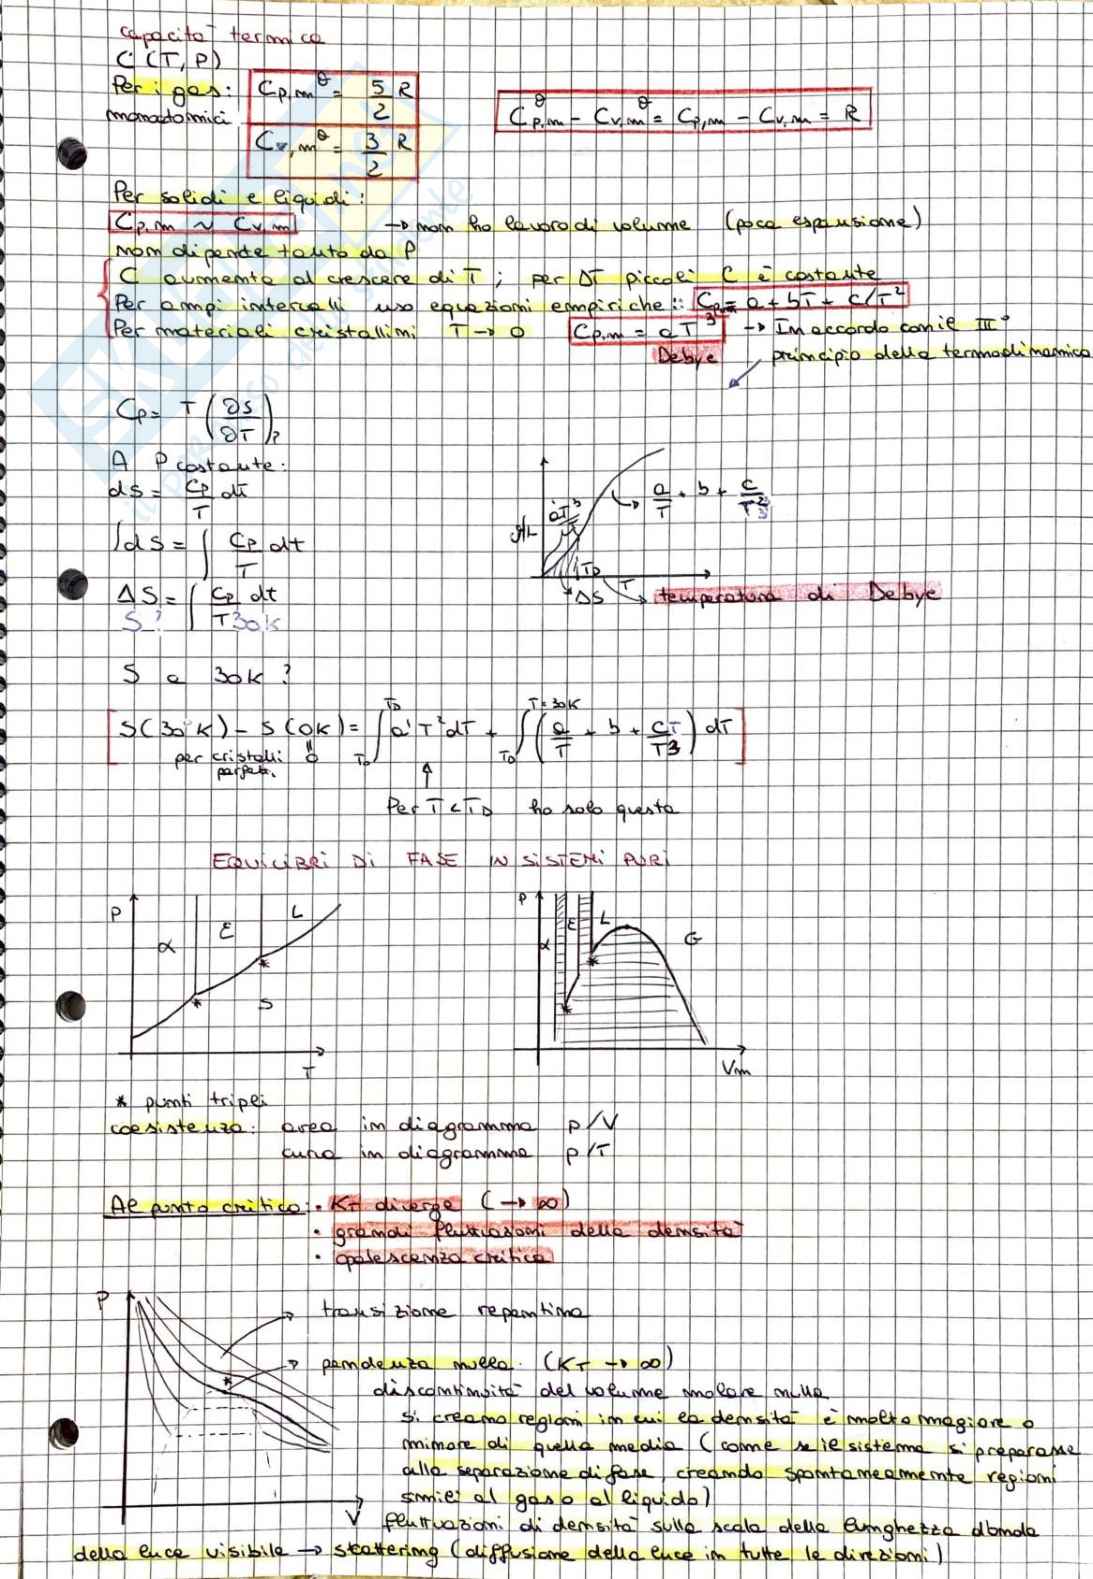 capacità termica
C (T, P)
Per i gas: Cp,m^θ = 5/2 R
monoatomici
Cp,m^θ - Cv,m^θ = Cp,m - Cv,m = R
Cv,m^θ = 3/2 R
Per solidi e liquidi:
Cp,m ~ Cv,m → non ho lavoro di volume (poca espansione)
non dipende tanto da P
C aumenta al crescere di T; per ΔT piccoli C è costante
Per ampi intervalli uso equazioni empiriche: Cp = a + bT + c/T²
Per materiali cristallini T → 0 Cp,m = aT³ → In accordo con il III°
Debye principio della termodinamica
Cp = T (∂S/∂T)p
A P costante:
dS = Cp/T dt
∫dS = ∫ Cp/T dt
ΔS = ∫ Cp/T dt
S? 30K
a/T + b + c/T³
TD
T
ΔS temperatura di Debye
S a 30K ?
S(30K) - S(0K) = ∫ a'T²dT + ∫ (a/T + b + cT/T3) dT
TD T=30K
T0 TD
per cristalli 0
perfetti
Per T<TD ho solo questa
EQUILIBRI DI FASE IN SISTEMI PURI
P α ε L
S
T
P α ε L G
Vm
* punti tripli
coesistenza: area in diagramma p/V
curva in diagramma p/T
Al punto critico: • KT diverge (→ ∞)
• grandi fluttuazioni della densità
• opalescenza critica
P
transizione repentina
pendenza nulla. (KT → ∞)
discontinuità del volume molare nulla
si creano regioni in cui la densità è molto magiore o
minore di quella media (come se il sistema si preparasse
alla separazione di fase, creando spontaneamente regioni
simili al gas o al liquido)
V fluttuazioni di densità sulla scala della lunghezza d'onda
della luce visibile → scattering (diffusione della luce in tutte le direzioni)